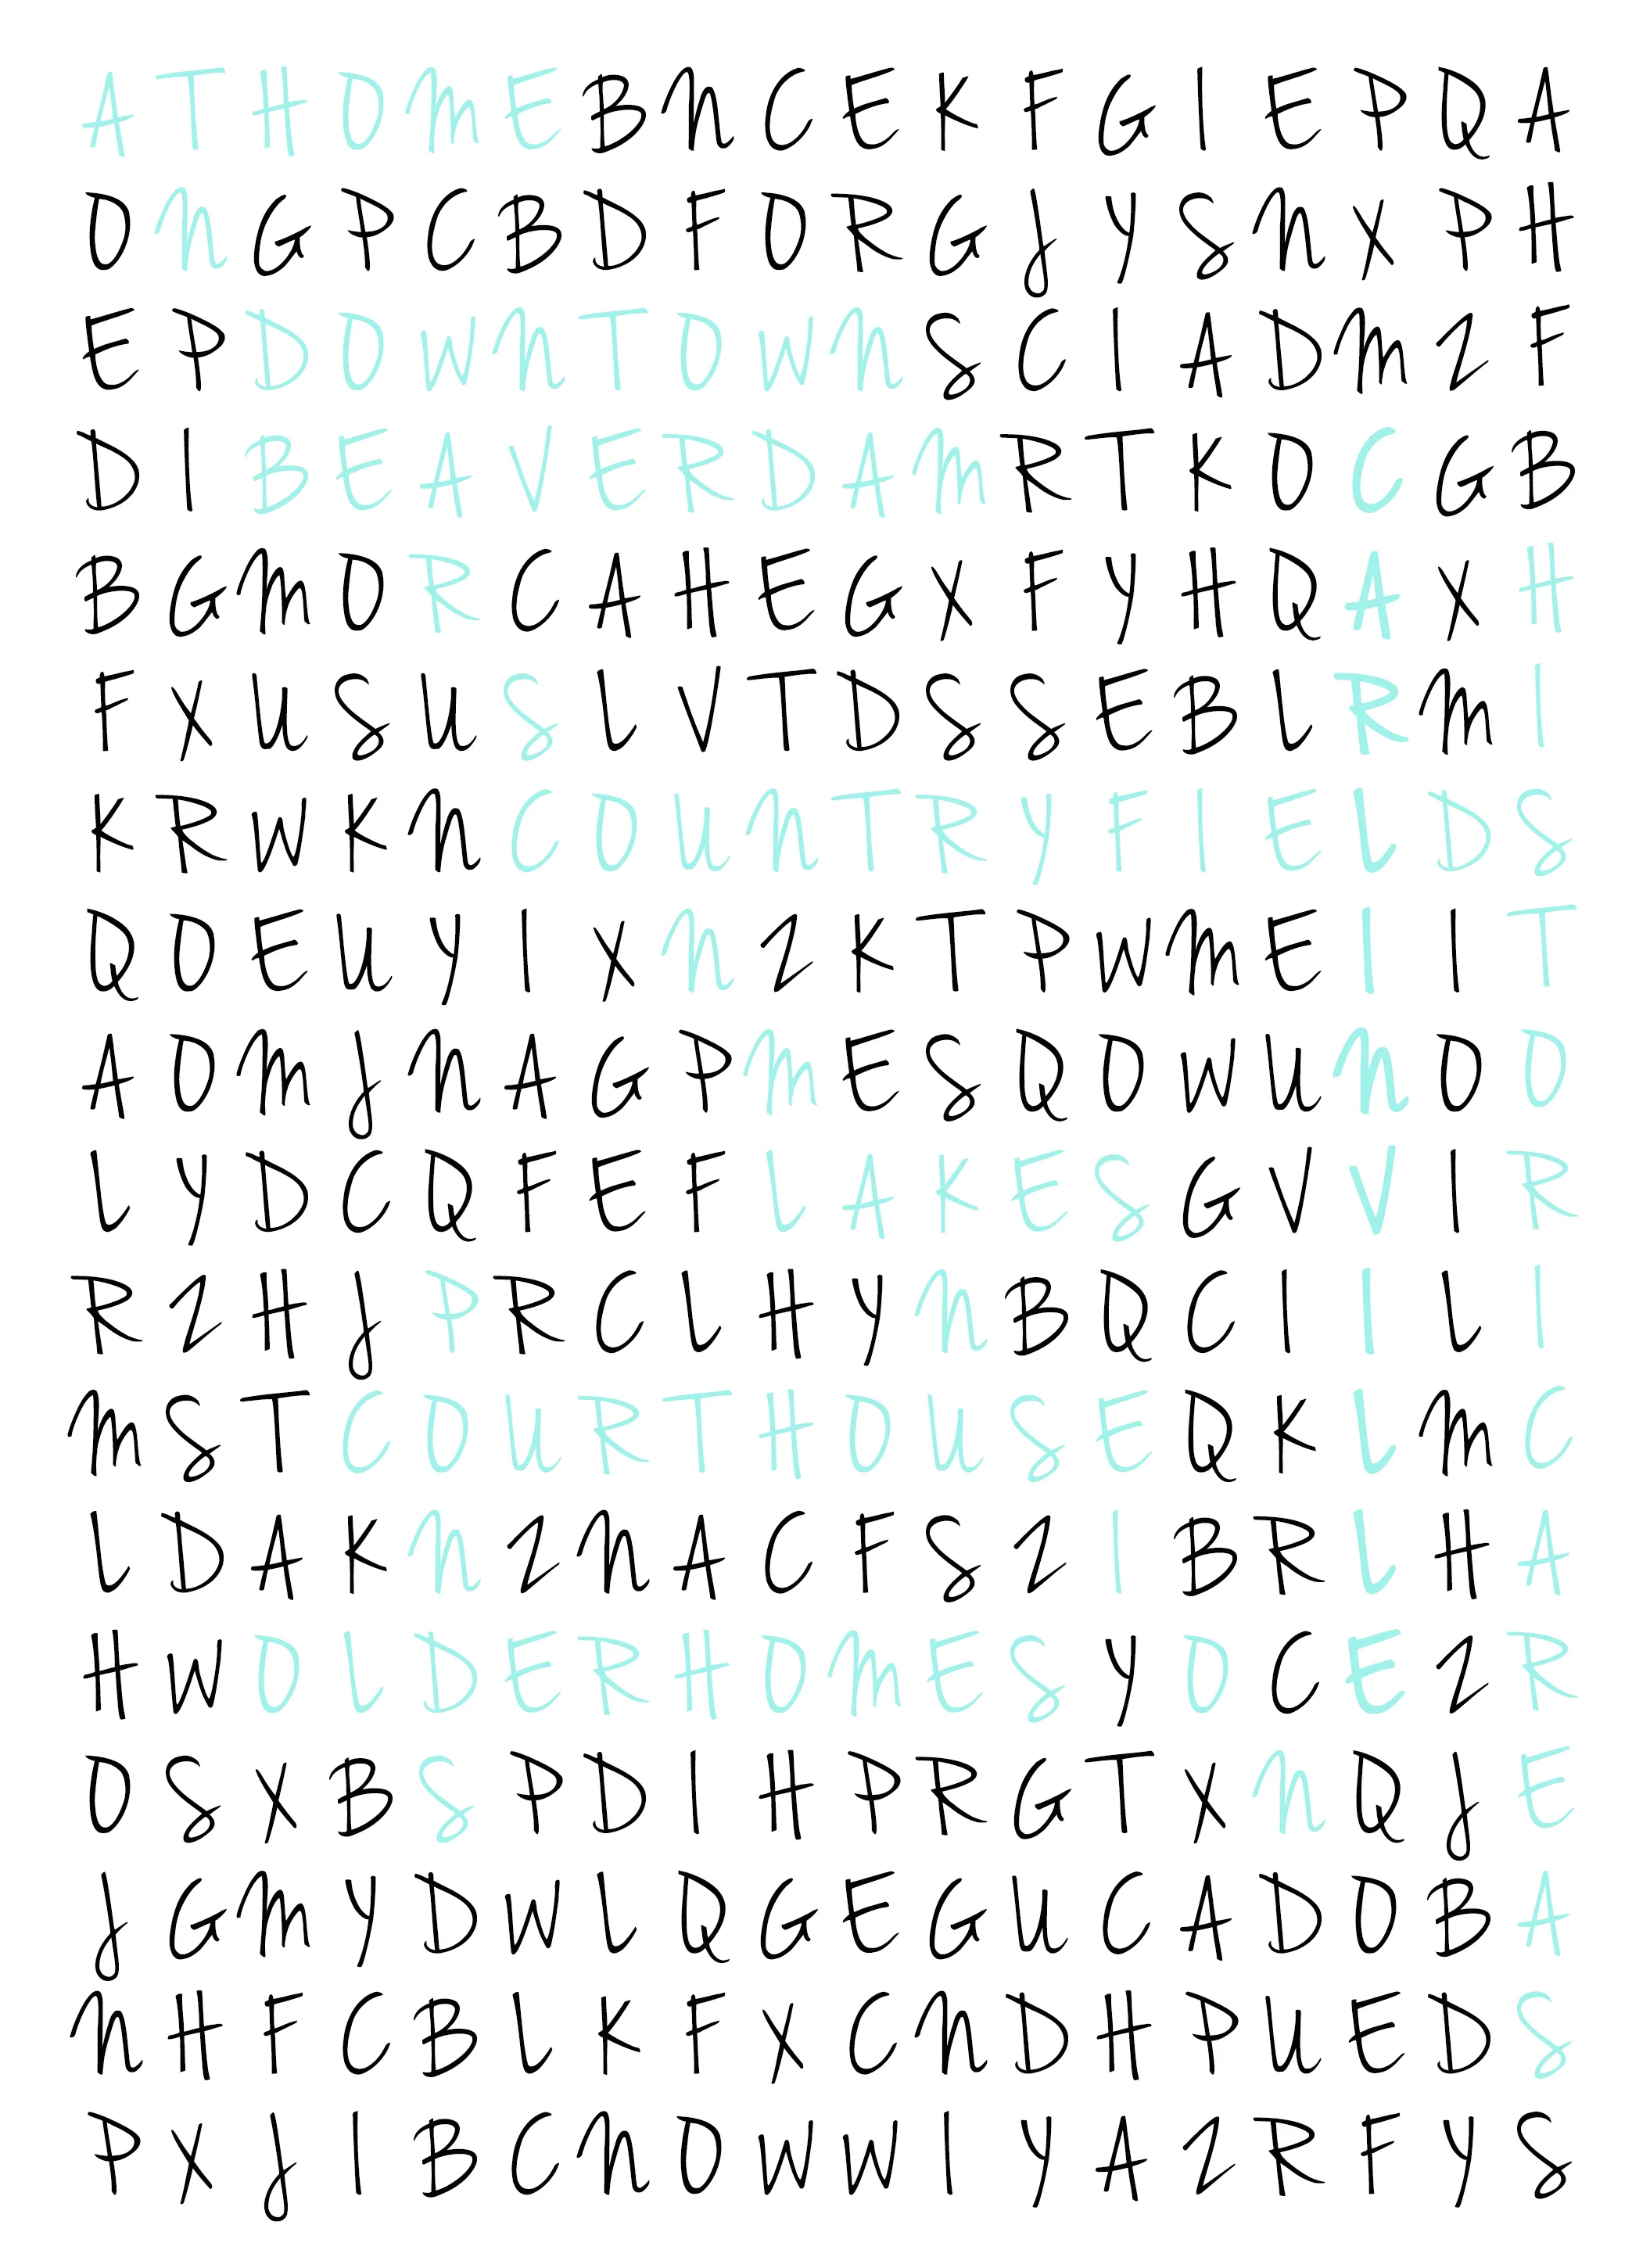 A T H O M E B N C E K F G I E P Q A
O N G P C B D F O R G J Y S N X P H
E P D O W N T O W N S C I A D M Z F
D I B E A V E R D A M R T K O C G B
B G M O R C A H E G X F Y H Q A X H
F X U S U S L V T D S S E B L R M I
K R W K N C O U N T R Y F I E L D S
Q O E U Y I X N Z K T P W M E I I T
A O M J N A G P M E S Q O W U N O O
L Y D C Q F E F L A K E S G V V I R
R Z H J P R C L H Y N B Q C I I L I
M S T C O U R T H O U S E Q K L M C
L D A K N Z N A C F S Z I B R L H A
H W O L D E R H O M E S Y O C E Z R
O S X B S P D I H P R G T X N Q J E
J G M Y D W L Q G E G U C A D O B A
N H F C B L K F X C N D H P U E D S
P X J I B C N O W W I Y A Z R F Y S